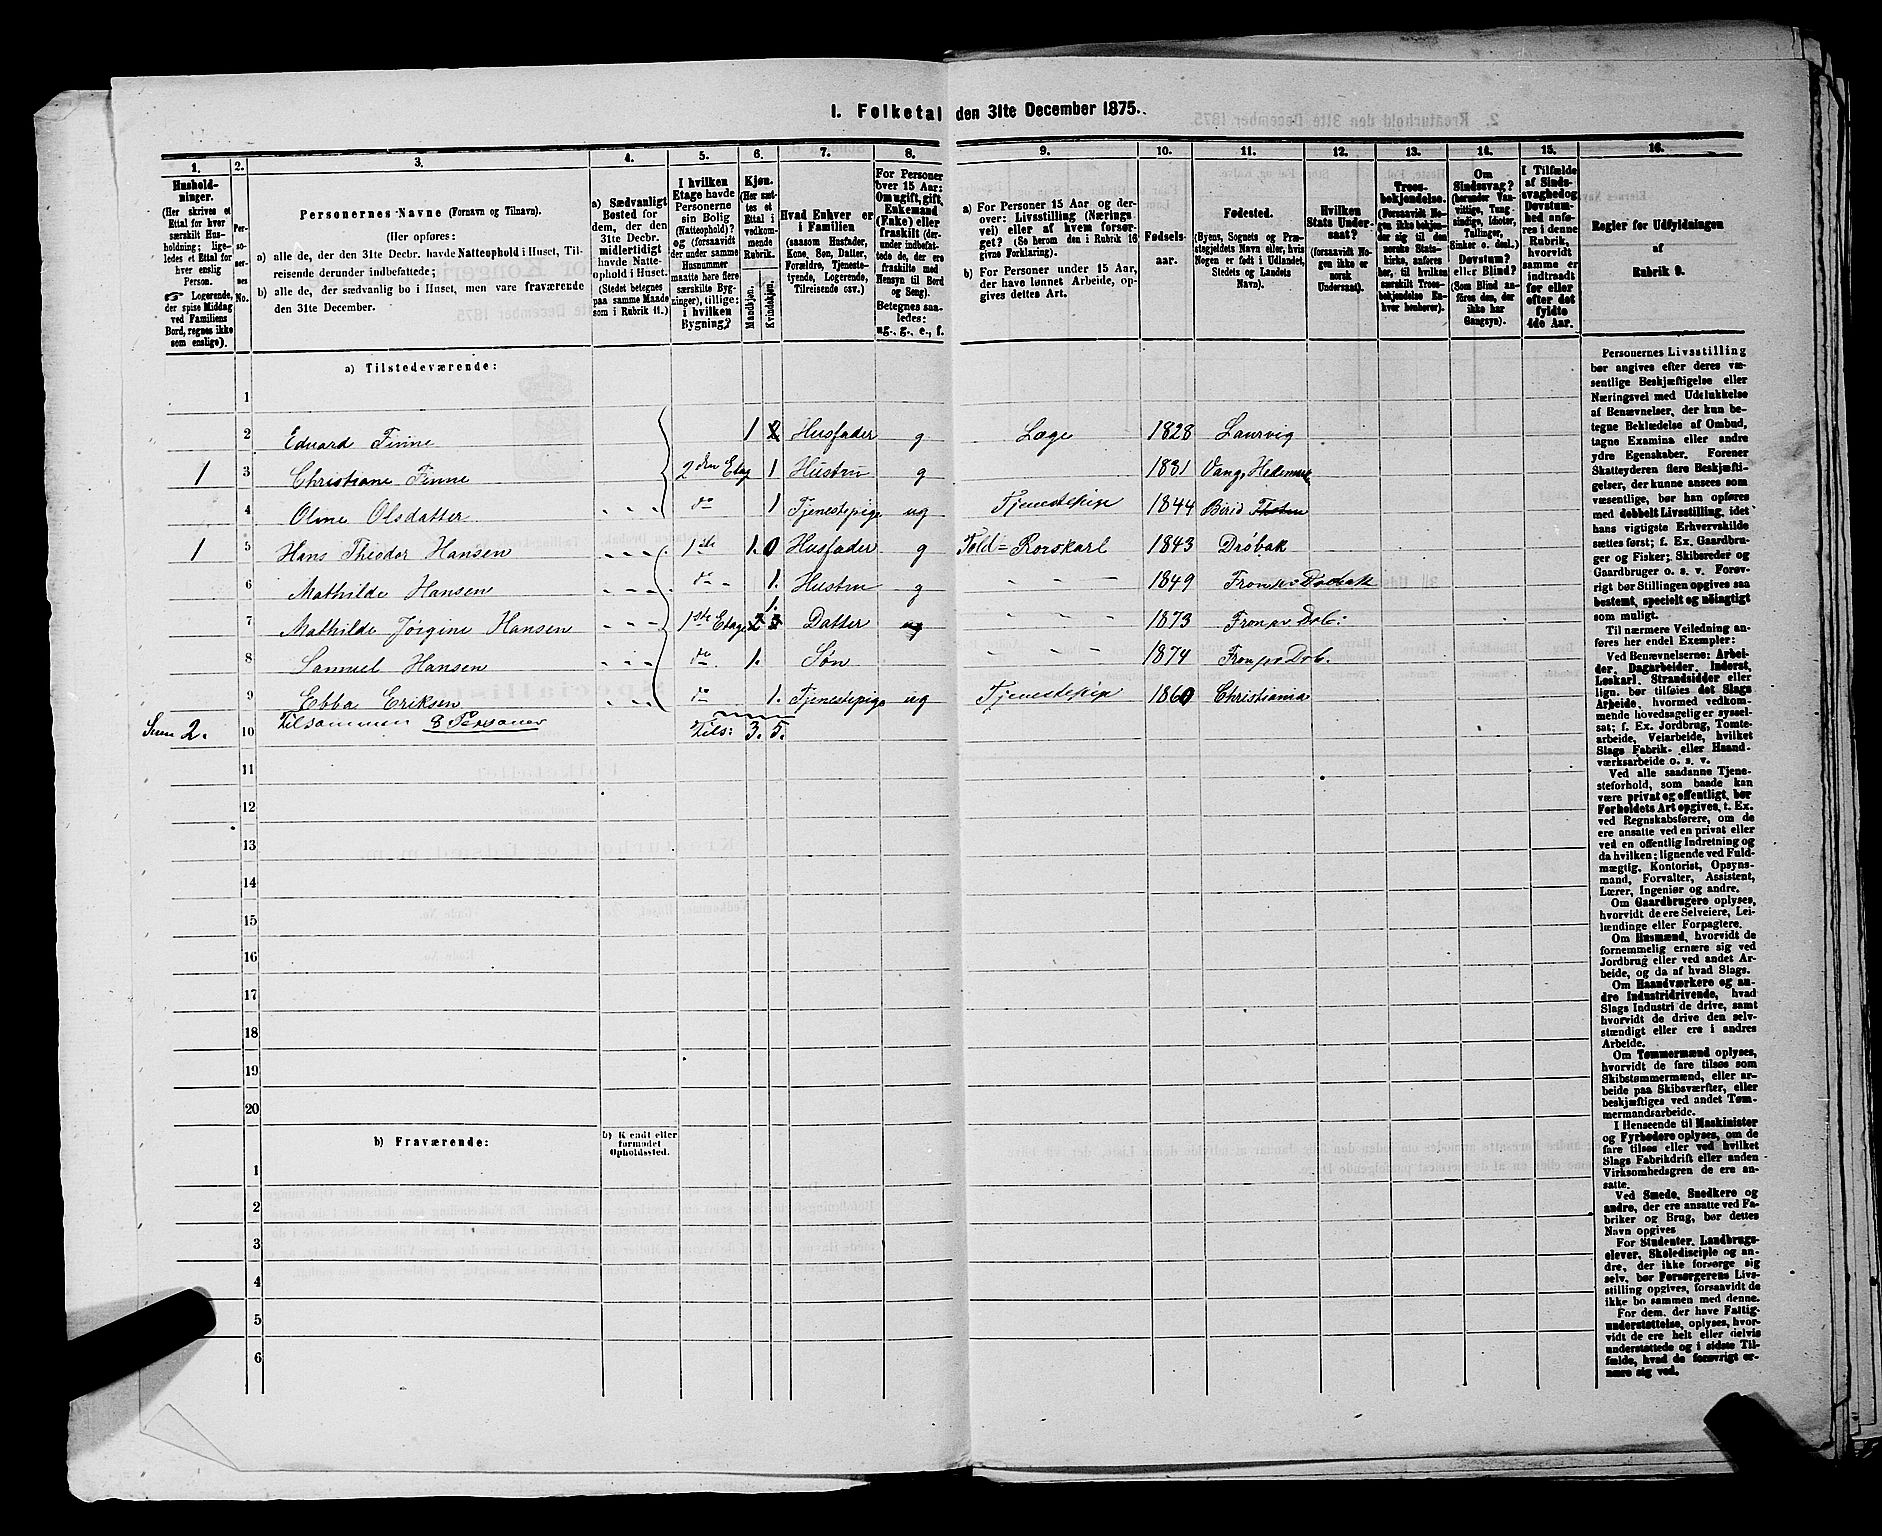 1. Folketal den 31te December 1875.
1. 2. 3. 4. 5. 6. 7. 8. 9. 10. 11. 12. 13. 14. 15. 16.
Hushold-
ninger.
(Her skrives et
Ettal for hver
særskilt Hus-
holdning; lige-
ledes et Ettal for
hver enslig
Person.
☞ Logerende,
der spise Middag
ved Familiens
Bord, regnes ikke
som enslige).
Per-
so-
ner-
nes
No.
Personernes Navne (Fornavn og Tilnavn).
(Her opføres:
a) alle de, der den 31te Decbr. havde Natteophold i Huset, Til-
reisende derunder indbefattede;
b) alle de, der sædvanlig bo i Huset, men vare fraværende
den 31te December.
a) Sædvanligt
Bosted for
dem, der den
31te Decbr.
midlertidigt
havde Natte-
ophold i Huset.
(Stedet betegnes
paa samme Maade
som i Rubrik 11.)
I hvilken
Etage havde
Personerne
sin Bolig
(Natteophold)?
og (forsaavidt
der under samme
Husnummer
maatte høre flere
særskilte Byg-
ninger), tillige:
i hvilken
Bygning?
Kjøn.
(Her sæt-
tes et
Ettal i
vedkom-
mende
Rubrik.
Mandkjøn.
Kvindekjøn.
Hvad Enhver er
i Familien
(saasom Husfader,
Kone, Søn, Datter,
Forældre, Tjeneste-
tyende, Logerende,
Tilreisende osv.)
For Personer
over 15 Aar:
Om ugift, gift,
Enkemand
(Enke) eller
fraskilt (der-
under indbefat-
tede de, der ere
fraskilte med
Hensyn til Bord
og Seng).
Betegnes saa-
ledes:
ug., g., e., f.
a) For Personer 15 Aar og der-
over: Livsstilling (Nærings-
vei) eller af hvem forsør-
get? (Se herom den i Rubrik 16
givne Forklaring).
b) For Personer under 15 Aar,
der have lønnet Arbeide, op-
gives dettes Art.
Fødsels-
aar.
Fødested.
(Byens, Sognets og Præ-
stegjeldets Navn eller, hvis
Nogen er født i Udlandet,
Stedets og Landets
Navn).
Hvilken
Stats Under-
saat?
(forsaavidt No-
gen ikke er
norsk
Undersaat).
Troes-
bekjendelse.
(Forsaavidt No-
gen ikke bekjen-
der sig til den
norske Stats-
kirke, anføres
her, til hvilken
særskilt Troes-
bekjendelse En-
hver henhører).
Om
Sindssvag?
(herunder Van-
vittige, Tung-
sindige, Idioter,
Tullinger,
Sinker o. desl.)
Døvstum?
eller Blind?
(Som Blind an-
føres den, der
ikke har
Gangsyn).
I Tilfælde
af Sinds-
svaghed og
Døvstum-
hed anfø-
res i denne
Rubrik,
hvorvidt
samme er
indtraadt
før eller
efter det
fyldte
4de Aar.
Regler for Udfyldningen
af
Rubrik 9.
a) Tilstedeværende:
1
2 Eduard Finne 1 Husfader g Læge 1828 Laurvig
1 3 Christiane Finne 2den Etag 1 Hustru g 1831 Vang, Hedemark
4 Oline Olsdatter - - - do 1 Tjenestepige ug Tjenestepige 1844 Birid
1 5 Hans Theodor Hansen - - - 1ste 1. 0 Husfader g Told = Rorskarl 1843 Drøbak
6 Mathilde Hansen - - - do - 1. Hustru g - - - 1849
7 Mathilde Jørgine Hansen - - - 1ste Etage 1. Datter ug - - - 1873
8 Samuel Hansen - - - do 1. Søn - - - 1874
9 Ebba Eriksen do 1. Tjenestepige ug Tjenestepige 1860 Christiania
2. 10 Tilsammen 8 Personer Tils: 3. 5.
11
12
13
14
15
16
17
18
19
20
b) Fraværende:
b) Kjendt eller
formodet
Opholdssted.
1
2
3
4
5
6
Personernes Livsstilling
bør angives efter deres væ-
sentlige Beskjæftigelse eller
Næringsvei med Udelukkelse
af Benævnelser, der kun be-
tegne Beklædelse af Ombud,
tagne Examina eller andre
ydre Egenskaber. Forener
Skatteyderen flere Beskjæfti-
gelser, der kunne ansees som
væsentlige, bør han opføres
med dobbelt Livsstilling, idet
hans vigtigste Erhvervskilde
sættes først; f. Ex. Gaardbru-
ger og Fisker; Skibsreder og
Gaardbruger o. s. v. Forøv-
rigt bør Stillingen opgives saa
bestemt, specielt og nøiagtigt
som muligt.
Til nærmere Veiledning an-
føres her endel Exempler:
Ved Benævnelserne: Arbei-
der, Dagarbeider, Inderst,
Løskarl, Strandsidder eller
lign. bør tilføies det Slags
Arbeide, hvormed vedkom-
mende hovedsagelig er syssel-
sat; f. Ex. Jordbrug, Tomte-
arbeide, Veiarbeide, hvilket
Slags Fabrik- eller Haand-
værksarbeide o. s. v.
Ved alle saadanne Tjene-
steforhold, som baade kan
være privat og offentligt, bør
Forholdets Art opgives, t. Ex.
ved Regnskabsførere, om de
ere ansatte ved en privat eller
ved en offentlig Indretning og
da hvilken; lignende ved Fuld-
mægtig, Kontorist, Opsyns-
mand, Forvalter, Assistent,
Lærer, Ingeniør og andre.
Om Gaardbrugere oplyses,
hvorvidt de ere Selveiere, Lei-
lændinge eller Forpagtere.
Om Husmænd, hvorvidt de
fornemmelig ernære sig ved
Jordbrug eller ved andet Ar-
beide, og da af hvad Slags.
Om Haandværkere og an-
dre Industridrivende, hvad
Slags Industri de drive, samt
hvorvidt de drive den selv-
stændigt eller ere i andres
Arbeide.
Om Tømmermænd oplyses,
hvorvidt de fare tilsøs som
Skibstømmermænd, eller ar-
beide paa Skibsværfter, eller
beskjæftiges ved andet Tøm-
mermandsarbeide.
I Henseende til Maskinister
og Fyrbødere oplyses, om de
fare tilsøs eller ved hvilket
Slags Fabrikdrift eller anden
Virksomhedsgren de ere an-
satte.
Ved Smede, Snedkere og
andre, der ere ansatte ved Fa-
briker og Brug, bør dettes
Navn opgives.
For Studenter, Landbrugs-
elever, Skoledisciple og an-
dre, der ikke forsørge sig
selv, bør Forsørgerens Livs-
stilling opgives, forsaavidt de
ikke bo sammen med denne.
For dem, der have Fattig-
understøttelse, oplyses, hvor-
vidt de ere helt eller delvis
understøttede og i sidste Til-
fælde, hvad de forøvrigt er-
nære sig ved.